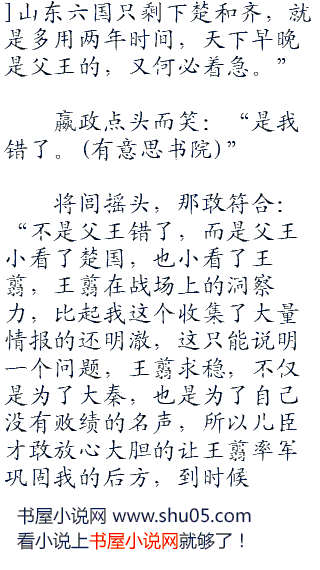 ]山东六国只剩下楚和齐，就
是多用两年时间，天下早晚
是父王的，又何必着急。”
嬴政点头而笑：“是我
错了。(有意思书院)”
将闾摇头，那敢符合：
“不是父王错了，而是父王
小看了楚国，也小看了王
翦，王翦在战场上的洞察
力，比起我这个收集了大量
情报的还明澈，这只能说明
一个问题，王翦求稳，不仅
是为了大秦，也是为了自己
没有败绩的名声，所以儿臣
才敢放心大胆的让王翦率军
巩固我的后方，到时候
书屋小说网 www.shu05.com
看小说上书屋小说网就够了！